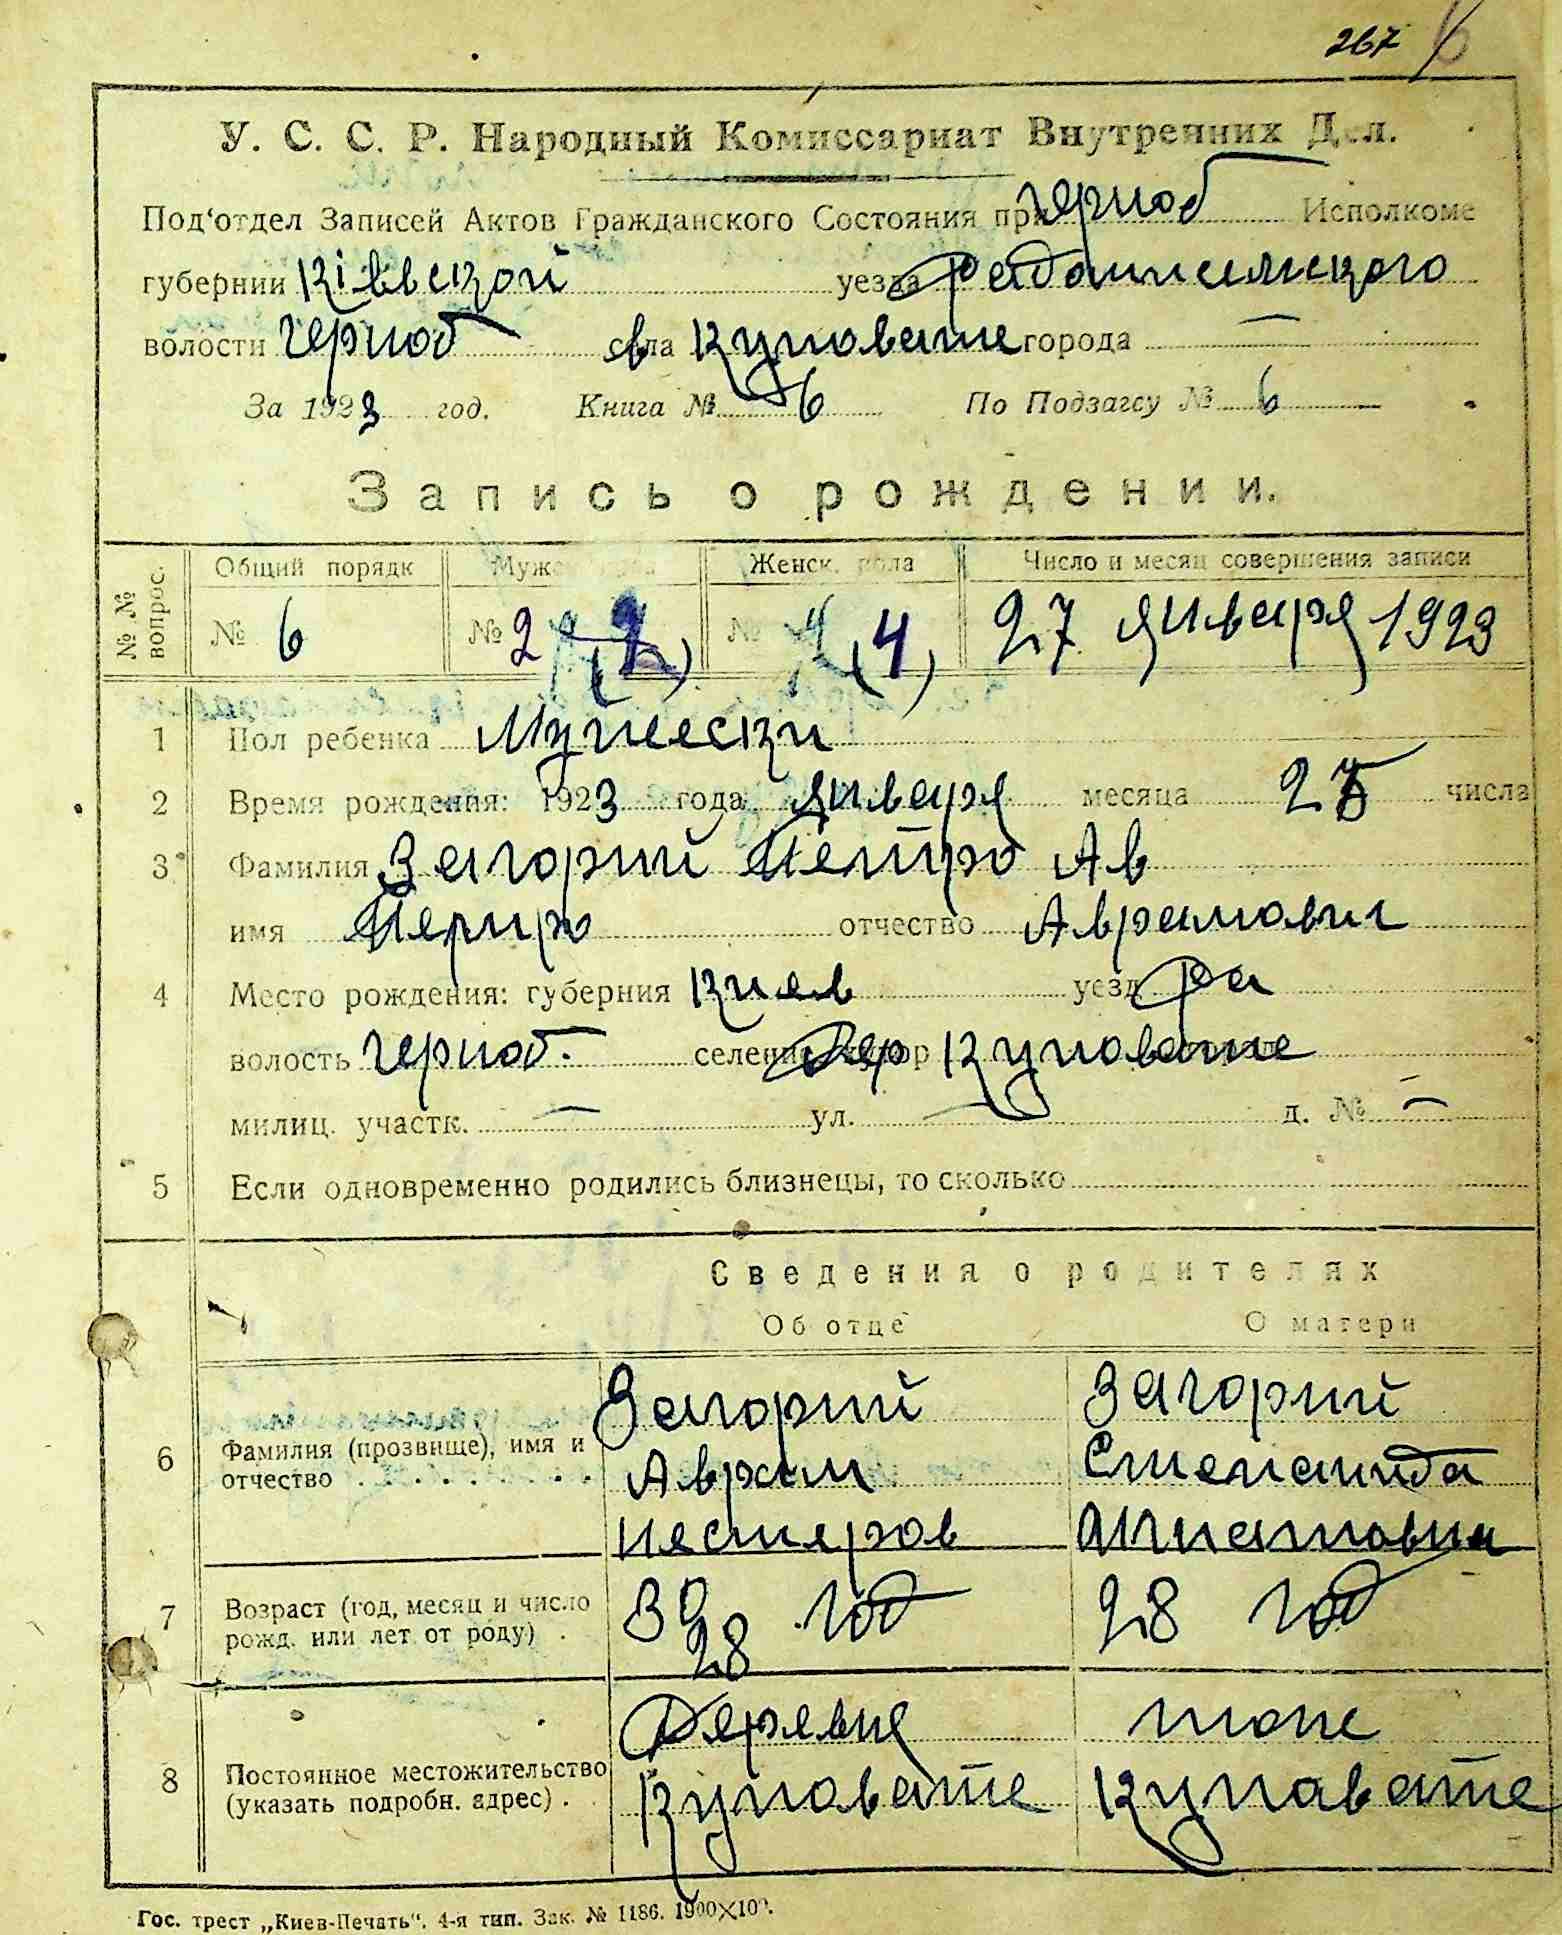 267 6
У. С. С. Р. Народный Комиссариат Внутренних Дел.
Под'отдел Записей Актов Гражданского Состояния при Черноб Исполкоме
губернии Кіевской уезда Радомисельского
волости Черноб села Куповате города —
За 1923 год. Книга № 6 По Подзагсу № 6
Запись о рождении.
№ № вопрос. Общий порядк Мужс Женск. пола Число и месяц совершения записи
№ 6 № 2 (2) № 4 (4) 27 января 1923
1 Пол ребенка Мужески
2 Время рождения: 1923 года января месяца 27 числа
3 Фамилия Загорий Петро Ав
имя Петро отчество Аврамович
4 Место рождения: губерния Киев уезд Ра
волость Черноб. селение Дер Куповате
милиц. участк. — ул. — д. № —
5 Если одновременно родились близнецы, то сколько
Сведения о родителях
Об отце О матери
Загорий Загорий
6 Фамилия (прозвище), имя и отчество Аврам Степанида
Нестеров Игнатовна
7 Возраст (год, месяц и число рожд. или лет от роду) 30 год 28 год
28
Деревня тоже
8 Постоянное местожительство (указать подробн. адрес) Куповате Куповате
Гос. трест „Киев-Печать“. 4-я тип. Зак. № 1186. 1900×100.